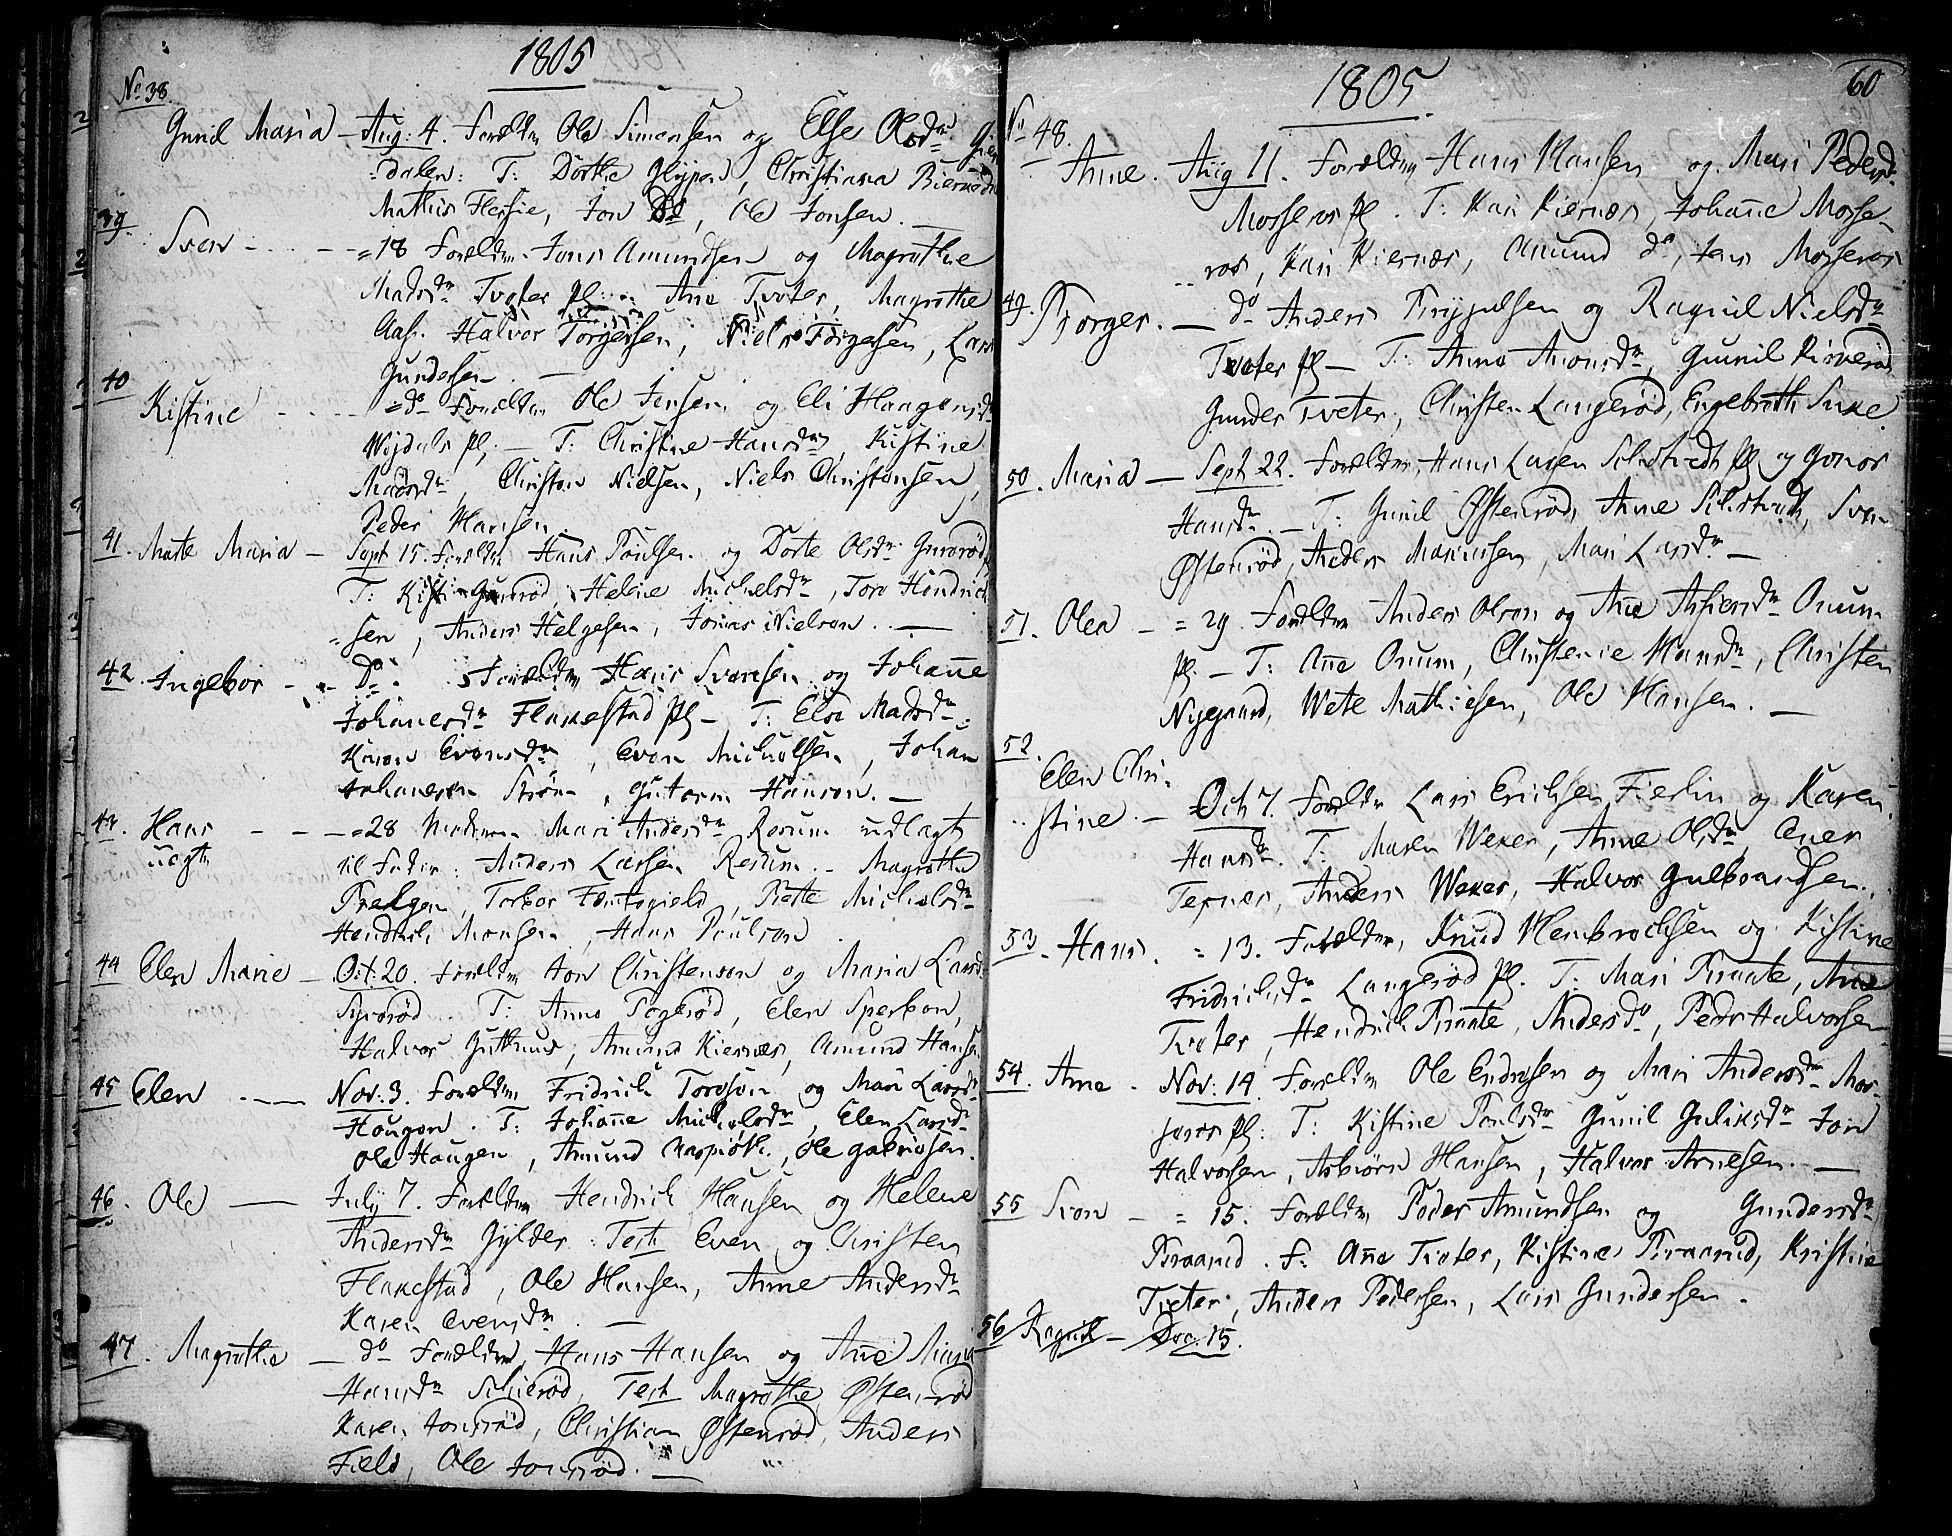 1805
No 38.
Gunil Maria – Aug: 4. Forældre Ole Simensen og Else Olsdr
dalen: T: Dorthe Glypen, Christiana
Mathis Flessie, Jon Do, Ole Jonsen. —
39. Sven - - - = 18 Forældre Jens Amundsen og Magrethe
Madsdr Tveter pl: Ane Tveter, Magrethe
Aas. Halvor Torgersen, Niels Torgersen, Lars
Gundersen. —
40 Kistine - - - - = do Forældre Ole Jensen og Eli Haagensdr
pl — T: Christine Hansdr, Kistine
Madsdr, Christen Nielsen, Niels Christensen,
Peder Hansen.
41. Marte Maria — Sept 15. Forældre Hans Poulsen og Dorte Olsdr Gunrød,
T: Kisti Gunrød, Helene Michelsdr, Tore Hendrich
=sen, Anders Helgesen, Jonas Nielsen. —
42. Ingebor - - Do. Forældre Hans Svensen og Johañe
Johanesdr Flakestad pl – T: Else Madsdr.
Karen Evensdr, Even Michelsen, Johan
Johanesen Strøm, Gutorm Hansen. —
43. Hans - - — = 28 Moderen Mari Andersdr Rosum udlagt
uægte til Fader: Anders Larsen Rosum. – Magrethe
Prelgen, Torbor, Mette Michelsdr
Hendrich Monsen, Hans Poulsen.
44 Elen Marie — Oct: 20. Forældre Jon Christensen og Maria Larsd
T: Anne Togerød, Elen Sperbon,
Halvor, Amund Kiernæs, Amund Hansen
45 Elen ——— Nov: 3. Forældre Fridrich Toresen og Mari Larsdr
Hougen. T: Johañe Michelsdr, Elen Larsdr
Ole Haugen, Amund, Ole Gabrielsen.
46. Ole —— July 7. Forældre Hendrich Hansen og Helene
Andersdr Gylder. Test Even og Christen
Flakestad, Ole Hansen, Anne Andersdr
Karen Evensdr. —
47. Magrethe — do Forældre Hans Hansen og Añe Maria
Hansdr Schierød, Test Magrethe Østenrød
Karen Jonsrød, Christian Østenrød, Anders
Field, Ole Jonsrød. —
1805.
60
No 48.
Anne. Aug 11. Forældre Hans Hansen og Mari Pedersdr
Mosseros pl. T: Kari Kiernæs, Johañe Mosse-
ros, Kari Kiernæs, Amund do, Jens Mosseros
49. Torger. — do Anders og Ragnil Nielsdr
Tveter pl — T: Anne Amonsdr, Gunnil
Gunder Tveter, Christen Langerød, Engebreth
50. Maria — Sept 22. Forældre, Hans Larsen pl og Gonor
Hansdr. — T: Gunil Østenrød, Anne, Sven
Østenrød, Anders, Mari Larsdr —
51. Olea — = 29. Forældre Anders Olson og Añe Onum
pl. — T: Añe Onum, Christense Hansdr, Christen
Nygaard, Wete Mathiesen, Ole Hansen. —
52. Elen Chri-
stine. — Octb 7. Forældre Lars Erichsen Fierlin og Karen
Hansdr. T: Maren Weker, Anne Olsdr, Even
Ternes, Anders Weker, Halvor Gulbrandsen.
53. Hans. = 13. Forældre, Knud Hembrechsen og Kistine
Fridrichsdr Langerød pl. T: Mari Praate, Ane
Tveter, Hendrich Praate, Anders do, Peder Halvorsen
54. Anne. Nov: 14. Forældre Ole Endresen og Mari Andersdr Mos-
seros pl: T: Kistine Poulsdr Gunil Guliksdr Jon
Halvorsen, Asbiørn Hansen, Halvor Arnesen. —
55 Sven – = 15. Forældre Peder Amundsen og Gundersdr
Braarud. T: Añe Tveter, Kistine Braarud, Kristine
Tveter, Anders Pedersen, Lars Gundersen.
56 Ragnil — Dec. 15.